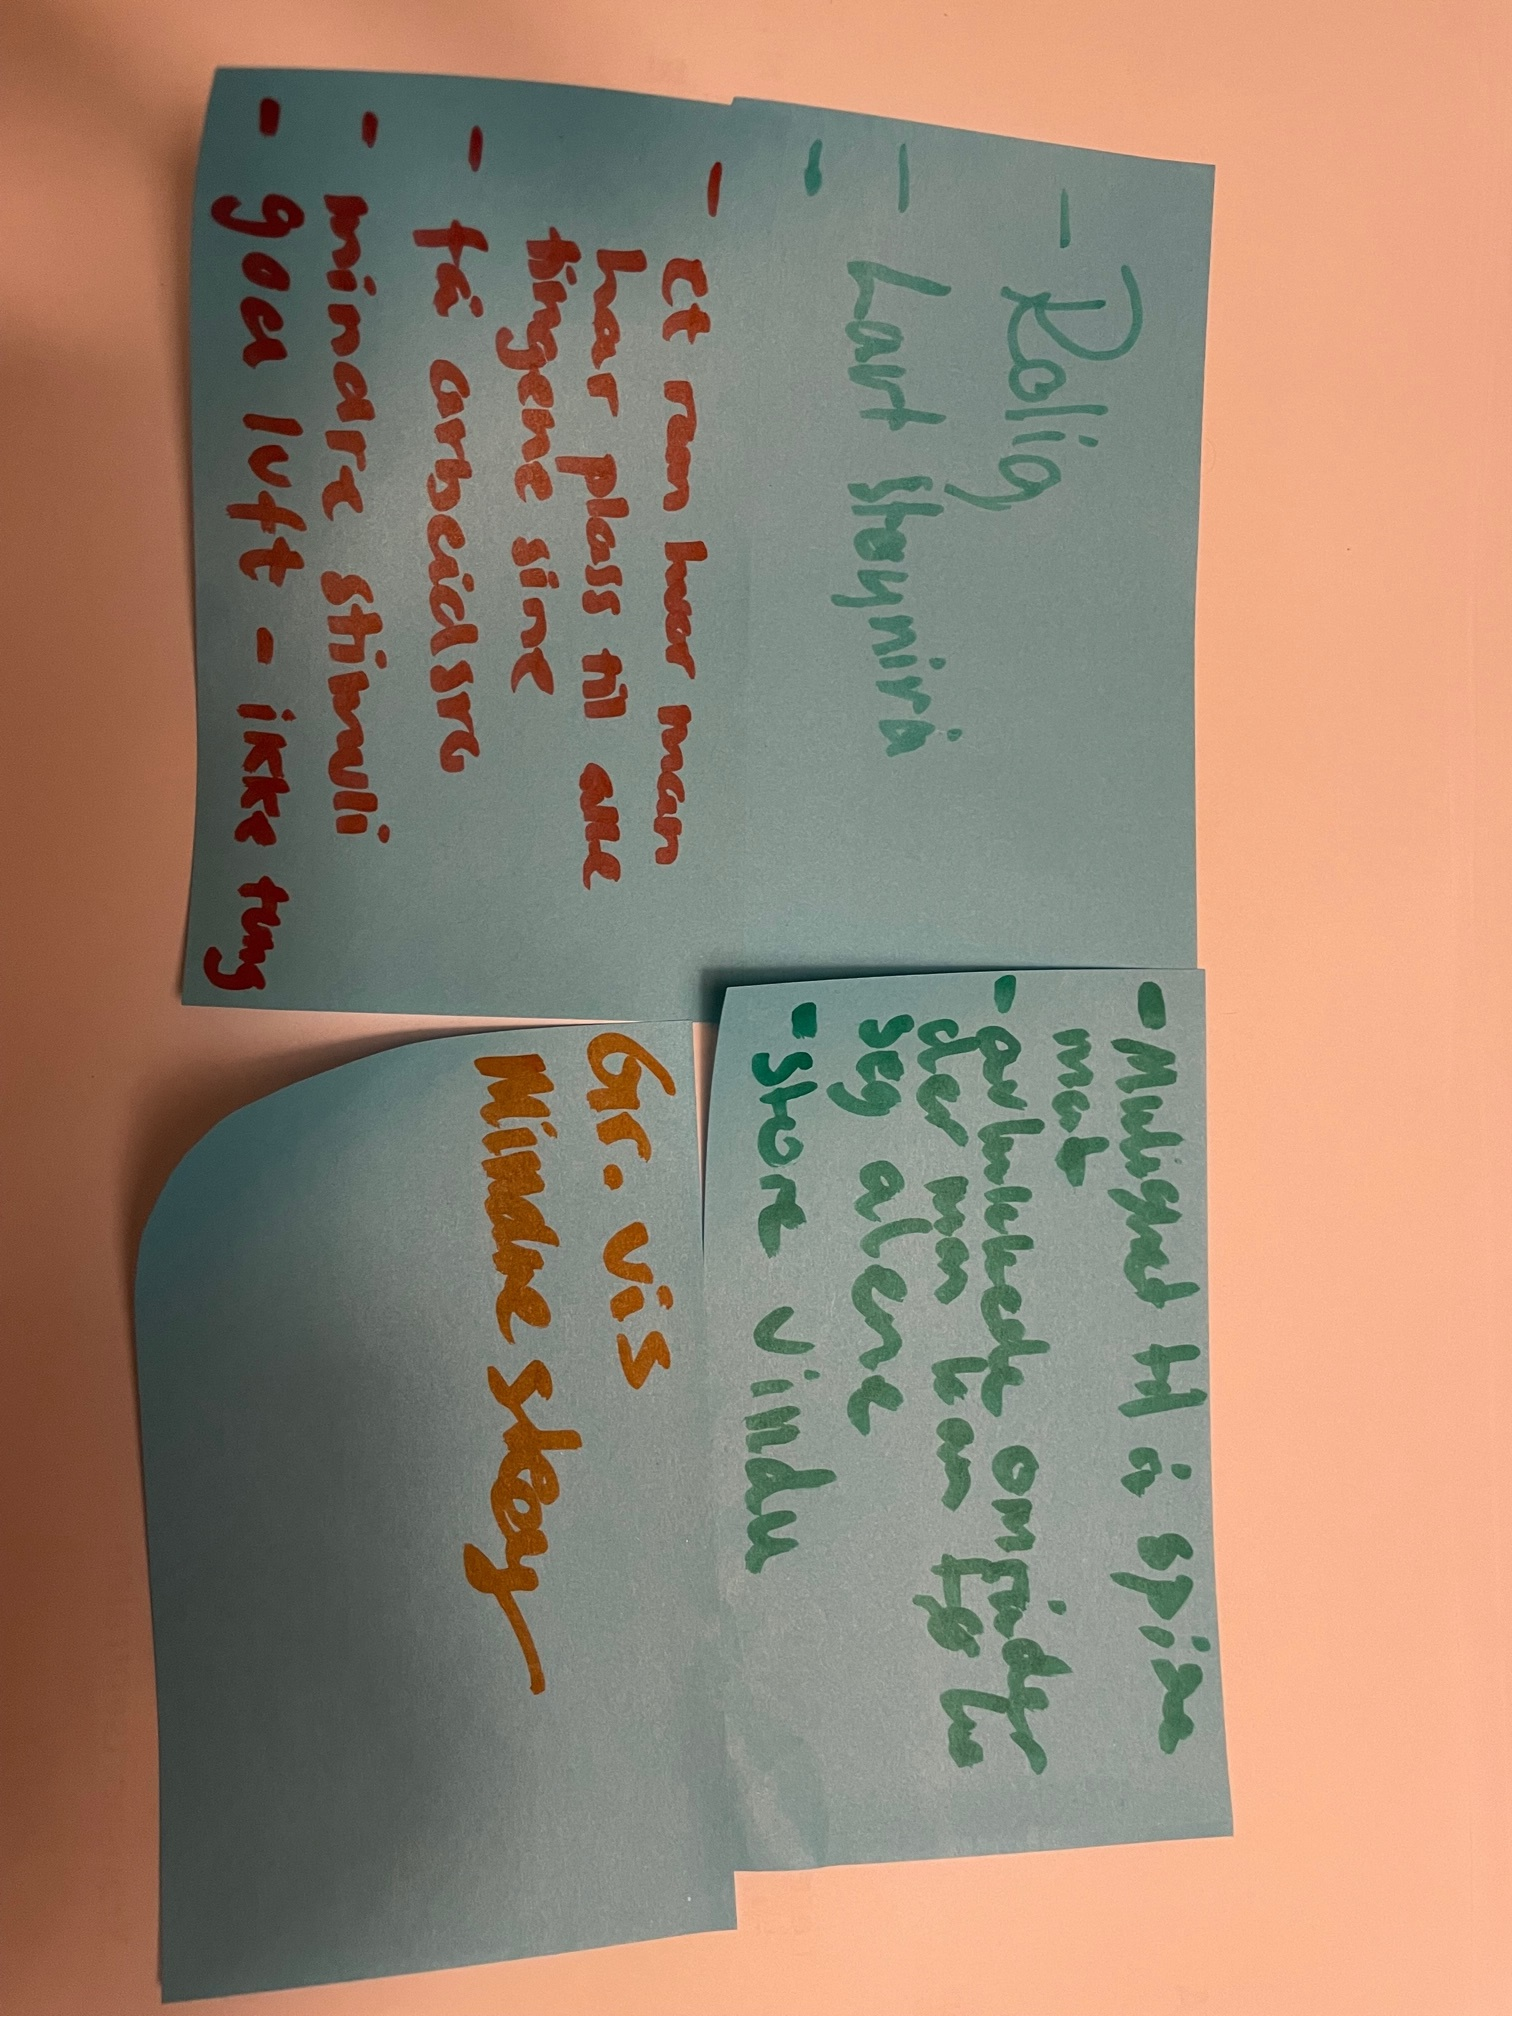 - Rolig
- Lavt støynivå
-
- Et rom hvor man
har plass til alle
tingene sine
- få arbeidsro
- mindre stimuli
- god luft - ikke tung
- Mulighet til å spise
mat
- avlukkede områder
der man kan for
seg alene
- store vindu
Gr. vis
Mindre støy